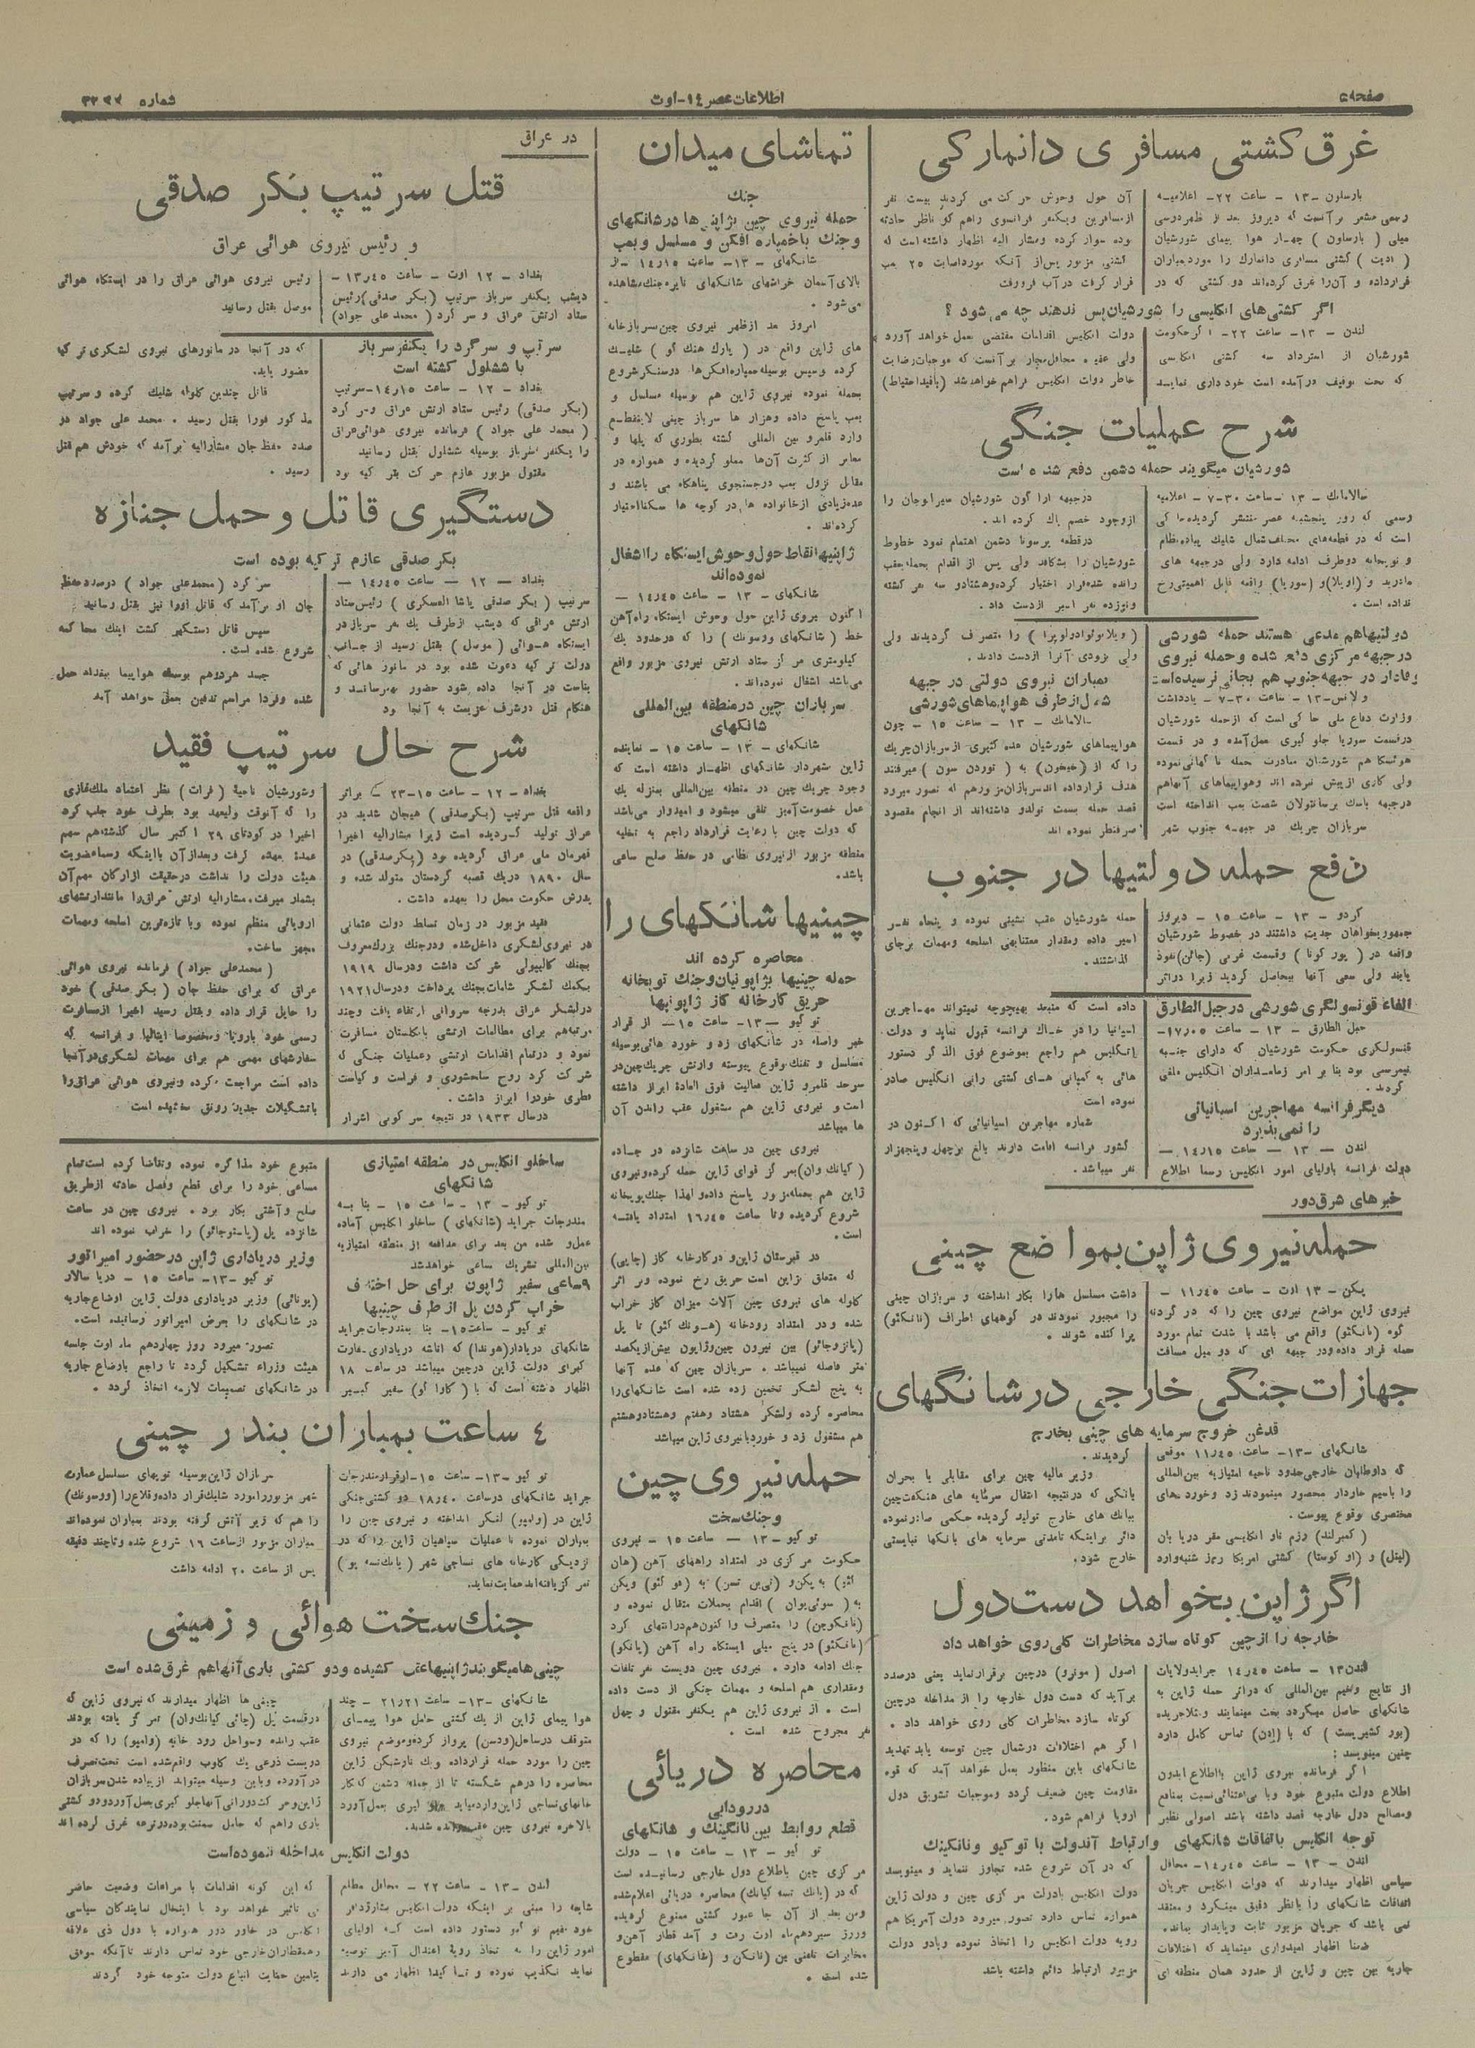 صفحه۵
اطلاعات عصر ۱۴-اوت
شماره ۳۲۳۷
غرق کشتی مسافری دانمارکی
بارسلون -۱۳ - ساعت ۲۲- اعلامیه
رسمی مشعر برآنست که دیروز بعد از ظهر درسی
میلی (بارسلون) چهار هوا پیمای شورشیان
(ادیت) کشتی مسافری دانمارک را مورد بمباران
قرارداده و آن را غرق کرده‌اند دو کشتی که در
آن حول وحوش حرکت می کردند بیست نفر
از مسافرین ویکنفر فرانسوی راهم که ناظر حادثه
بوده سوار کرده ومشار الیه اظهار داشته است که
کشتی مزبور پس از آنکه مورد اصابت ۲۵ بمب
قرار گرفت در آب فرورفت
اگر کشتی‌های انگلیسی را شورشیان پس ندهند چه می شود ؟
لندن - ۱۳- ساعت ۲۲- اگر حکومت
شورشیان از استرداد سه کشتی انگلیسی
که تحت توقیف درآمده است خود داری نمایند
دولت انگلیس اقدامات مقتضی بعمل خواهد آورد
ولی عقیده محافل مجاز برآنست که موجبات رضایت
خاطر دولت انگلیس فراهم خواهد شد (باقید احتیاط)
شرح عملیات جنگی
شورشیان میگویند حمله دشمن دفع شده است
سالامانک - ۱۳ -ساعت ۳۰-۷ - اعلامیه
رسمی که روز پنجشنبه عصر منتشر گردیده حاکی
است که در قطعه‌های مختلف شمال شلیک پیاده نظام
و توپخانه دوطرف ادامه دارد ولی در جبهه های
مادرید و (اویلا) و (سوریا) واقعه قابل اهمیتی رخ
نداده است .
درجبهه اراگون شورشیان سیرالوجان را
ازوجود خصم پاک کرده اند.
درقطعه پرسونا دشمن اهتمام نمود خطوط
شورشیان را بشکافد ولی پس از اقدام بحمله بعقب
رانده شده فرار اختیار کرده وهشتادو سه هر کشته
ونوزده نفر اسیر ازدست داد .
دولتیهاهم مدعی هستند حمله شورشی
درجبهه مرکزی دفع شده وحمله نیروی
وفادار در جبهه جنوب هم بجائی نرسیده است
والانس-۱۳- ساعت ۳۰-۷- یادداشت
وزارت دفاع ملی حاکی است که ازحمله شورشیان
درقسمت سوریا جلو گیری بعمل آمده و در قسمت
هوئسکا هم شورشیان مبادرت حمله ناگهانی نموده
ولی کاری از پیش نبرده اند وهواپیماهای آنهاهم
درجبهه باسک برسانتولان شصت بمب انداخته است
سربازان چریک در جبهه جنوب شهر
(ویلابولوادولوپرا) را متصرف گردیدند ولی
ولی بزودی آنرا ازدست دادند.
بمباران نیروی دولتی در جبهه
شمال ازطرف هواپیماهای شورشی
سالامانک - ۱۳ - ساعت ۱۵ - چون
هواپیماهای شورشیان عده کثیری ازسربازان چریک
را که از (خیخون) به (توردن سون) میرفتند
هدف قرارداده اند سربازان مزبورهم که تصور میرود
قصد حمله بسمت تولدو داشته‌اند از انجام مقصود
صرفنظر نموده اند
دفع حمله دولتیها در جنوب
کردو - ۱۳ - ساعت ۱۵ - دیروز
جمهوریخواهان جدیت داشتند در خطوط شورشیان
واقعه در (پور کونا) وقسمت غربی (جائن) نفوذ
یابند ولی سعی آنها بیحاصل گردید زیرا دواثر
حمله شورشیان عقب نشینی نموده و پنجاه نفر
اسیر داده ومقدار معتنابهی اسلحه ومهمات برجای
گذاشتند.
الغاء قونسولگری شورشی درجبل الطارق
جبل الطارق - ۱۳ - ساعت ۱۷ر۰۵-
قنسولگری حکومت شورشیان که دارای جنبه
نیمرسمی بود بنا بر امر زمامداران انگلیس ملغی
گردید .
دیگر فرانسه مهاجرین اسپانیائی
را نمی‌پذیرد
لندن - ۱۳ - ساعت ۱۴ر۱۵ -
دولت فرانسه باولیای امور انگلیس رسما اطلاع
داده است که منبعد بهیچوجه نمیتواند مهاجرین
اسپانیا را در خاک فرانسه قبول نماید و دولت
انگلیس هم راجع بموضوع فوق الذکر دستور
هائی به کمپانی های کشتی رانی انگلیس صادر
نموده است
شماره مهاجرین اسپانیائی که اکنون در
کشور فرانسه اقامت دارند بالغ برچهل وپنجهزار
نفر میباشد .
خبرهای شرق دور
حمله نیروی ژاپن بمواضع چینی
پکن - ۱۳ اوت - ساعت ۱۱ر۴۵ -
نیروی ژاپن مواضع نیروی چین را که در گردنه
کوه (نانکئو) واقع می باشد با شدت تمام مورد
حمله قرار داده ودر جبهه ای که دو میل مسافت
داشت مسلسل هارا بکار انداخته و سربازان چینی
را مجبور نمودند در کوههای اطراف (نانکئو)
پراکنده شوند .
جهازات جنگی خارجی در شانگهای
قدغن خروج سرمایه های چینی بخارج
شانگهای -۱۳- ساعت ۱۱ر۴۵ موقعی
که داوطلبان خارجی حدود ناحیه امتیازیه بین‌المللی
را باسیم خاردار محصور مینمودند زد وخوردهای
مختصری بوقوع پیوست.
(کمبرلند) رزم ناو انگلیسی مقر دریا بان
(لیتل) و (او کوستا) کشتی امریکا روز شنبه وارد
گردیدند.
وزیر مالیه چین برای مقابلی با بحران
بانکی که درنتیجه انتقال سرمایه های هنگفت چین
ببانک های خارج تولید گردیده حکمی صادر نموده
دائر براینکه تامدتی سرمایه های بانکها نبایستی
خارج شود.
اگر ژاپن بخواهد دست دول
خارجه را ازچین کوتاه سازد مخاطرات کلی روی خواهد داد
لندن ۱۳- ساعت ۱۴ر۴۵ جراید ولایات
از نتایج وخیم بین‌المللی که دراثر حمله ژاپن به
شانگهای حاصل میگردد بحث مینمایند ومثلا جریده
(یور کشیرپست) که با (ادن) تماس کامل دارد
چنین مینویسد :
اگر فرمانده نیروی ژاپن بااطلاع یابدون
اطلاع دولت متبوع خود وبا بی‌اعتنائی نسبت بمنافع
ومصالح دول خارجه قصد داشته باشد اصولی نظیر
اصول (مونرو) درچین برقرارنماید یعنی درصدد
برآید که دست دول خارجه را از مداخله درچین
کوتاه سازد مخاطرات کلی روی خواهد داد .
اگر هم اختلافات درشمال چین توسعه یابد تهدید
شانگهای باین منظور بعمل خواهد آمد که قوه
مقاومت چین ضعیف گردد وموجبات تشویق دول
اروپا فراهم شود.
توجه انگلیس باتفاقات شانگهای وارتباط آندولت با توکیو ونانکینک
لندن - ۱۳ - ساعت ۱۴ر۴۵- محافل
سیاسی اظهار میدارند که دولت انگلیس جریان
اتفاقات شانگهای را بانظر دقیق مینگرد و معتقد
نمی باشد که جریان مزبور ثابت وپایدار بماند.
ضمنا اظهار امیدواری مینماید که اختلافات
جاریه بین چین و ژاپن از حدود همان منطقه ای
که در آن شروع شده تجاوز ننماید و مینویسد
دولت انگلیس بادولت مرکزی چین و دولت ژاپن
همواره تماس دارد تصور میرود دولت آمریکا هم
رویه دولت انگلیس را اتخاذ نموده وبادو دولت
مزبور ارتباط دائم داشته باشد
تماشای میدان
جنک
حمله نیروی چین بژاپنی ها درشانگهای
وجنک باخمپاره افکن و مسلسل وبمب
شانگهای - ۱۳- ساعت ۱۴ر۱۵ -از
بالای آسمان خراشهای شانگهای نایره جنک مشاهده
می شود .
امروز بعد ازظهر نیروی چین سربازخانه
های ژاپن واقع در (پارک هنک کو) شلیک
کرده وسپس بوسیله خمپاره افکن‌ها درسنکر شروع
بحمله نموده نیروی ژاپن هم بوسیله مسلسل و
بمب پاسخ داده وهزار ها سرباز چینی لاینقطع
وارد قلمرو بین المللی گشته بطوری که پلها و
معابر از کثرت آن‌ها مملو گردیده و همواره در
مقابل نزول بمب درجستجوی پناهگاه می باشند و
عده‌زیادی ازخانواده ها در کوچه ها سکنا اختیار
کرده‌اند.
ژاپنیها نقاط حول وحوش ایستگاه را اشغال
نموده‌اند
شانگهای - ۱۳ - ساعت ۱۴ر۴۵ -
اکنون نیروی ژاپن حول وحوش ایستگاه راه‌آهن
خط (شانگهای ووسونک) را که درحدود یک
کیلومتری مرکز ستاد ارتش نیروی مزبور واقع
می‌باشد اشغال نموده‌اند.
سربازان چین درمنطقه بین‌المللی
شانگهای
شانگهای - ۱۳ - ساعت ۱۵ - نماینده
ژاپن بشهردار شانگهای اظهار داشته است که
وجود چریک چین در منطقه بین‌المللی بمنزله یک
عمل خصومت‌آمیز تلقی میشود و امیدوار می‌باشد
که دولت چین با رعایت قرارداد راجع به تخلیه
منطقه مزبور ازنیروی نظامی در حفظ صلح ساعی
باشد.
چینیها شانگهای را
محاصره کرده اند
حمله چینیها بژاپونیان وجنک توپخانه
حریق کارخانه گاز ژاپونیها
توکیو -۱۳- ساعت ۱۵- از قرار
خبر واصله در شانگهای زد و خورد هائی بوسیله
مسلسل و تفنگ بوقوع پیوسته وارتش چریک چین در
سرحد قلمرو ژاپن فعالیت فوق العاده ابراز داشته
است و نیروی ژاپن هم مشغول عقب راندن آن
ها میباشد
نیروی چین در ساعت شانزده در جاده
(کیانک وان) بمرکز قوای ژاپن حمله کرده ونیروی
ژاپن هم بحمله مزبور پاسخ داده ولهذا جنک توپخانه
شروع گردیده وتا ساعت ۱۶ر۴۵ امتداد یافته
است .
در قبرستان ژاپن و در کارخانه گاز (چاپی)
که متعلق بژاپن است حریق رخ نموده وبر اثر
گلوله های نیروی چین آلات میزان گاز خراب
شده و در امتداد رودخانه (هونک کئو) تا پل
(یانزوجائو) بین نیروی چین وژاپون بیش ازیکصد
متر فاصله نمیباشد . سربازان چین که عده آنها
به پنج لشکر تخمین زده شده است شانگهای را
محاصره کرده ولشکر هشتاد وهفتم وهشتادوهشتم
هم مشغول زد و خورد با نیروی ژاپن میباشد
حمله نیروی چین
وجنک سخت
توکیو - ۱۳ - ساعت ۱۵ - نیروی
حکومت مرکزی در امتداد راههای آهن (هان
کئو) به پکن و (تی‌ین تسن) به (هو کئو) وپکن
به (سوئی‌یوان) اقدام بحملات متقابل نموده و
(نانکوچن) را متصرف وا کنون هم درانتهای کرد
(نانکئو) در پنج میلی ایستگاه راه آهن (یانکو)
جنک ادامه دارد. نیروی چین دویست نفر تلفات
ومقداری هم اسلحه و مهمات جنگی از دست داده
است . از نیروی ژاپن هم یکنفر مقتول و چهل
نفر مجروح شده است .
محاصره دریائی
دررودآبی
قطع روابط بین نانگینک و شانگهای
توکیو - ۱۳ - ساعت ۱۵ - دولت
مرکزی چین باطلاع دول خارجی رسانیده است
که در (یانک تسه کیانک) محاصره دریائی اعلام‌شده
ومن بعد از آن جا عبور کشتی ممنوع گردیده
وروز سیزدهم‌ماه اوت رفت و آمد قطار آهن و
مخابرات تلفنی بین (نانکن و (شانگهای) مقطوع
شده است .
در عراق
قتل سرتیپ بکر صدقی
و رئیس نیروی هوائی عراق
بغداد - ۱۲ اوت - ساعت ۱۳ر۴۵ -
دیشب یکنفر سرباز سرتیپ (بکر صدقی) رئیس
ستاد ارتش عراقی و سرگرد (محمد علی جواد)
رئیس نیروی هوائی عراق را در ایستگاه هوائی
موصل بقتل رسانید
سرتیپ و سرگرد را یکنفر سرباز
با ششلول کشته است
بغداد - ۱۲ - ساعت ۱۴ر۱۵-سرتیپ
(بکر صدقی) رئیس ستاد ارتش عراق وسرگرد
(محمد علی جواد) فرمانده نیروی هوائی عراق
را یکنفر سرباز بوسیله ششلول بقتل رسانید
مقتول مزبور عازم حرکت بترکیه بود
که در آنجا در مانورهای نیروی لشکری ترکیه
حضور یابد.
قاتل چندین گلوله شلیک کرده و سرتیپ
مذکور فورا بقتل رسید . محمد علی جواد در
صدد حفظ جان مشارالیه برآمد که خودش هم قتل
رسید .
دستگیری قاتل و حمل جنازه
بکر صدقی عازم ترکیه بوده است
بغداد - ۱۲ - ساعت ۱۴ر۴۵ -
سرتیپ (بکر صدقی پاشا العسکری) رئیس ستاد
ارتش عراقی که دیشب ازطرف یک نفر سرباز در
ایستگاه هوائی (موصل) بقتل رسید از جانب
دولت ترکیه دعوت شده بود در مانور هائی که
بناست در آنجا داده شود حضور بهمرساند و
هنگام قتل درشرف عزیمت به آنجا بود
سرگرد (محمدعلی جواد) درصدد حفظ
جان او برآمد که قاتل اورا نیز بقتل رسانید
سپس قاتل دستگیر گشت اینک محاکمه
شروع شده است.
جسد هردوهم بوسیله هواپیما ببغداد حمل
شده وفردا مراسم تدفین بعمل خواهد آمد
شرح حال سرتیپ فقید
بغداد - ۱۲ - ساعت ۱۵-۲۳ - براثر
واقعه قتل سرتیپ (بکرصدقی) هیجان شدید در
عراق تولید گردیده است زیرا مشارالیه اخیرا
قهرمان ملی عراق گردیده بود (بکرصدقی) در
سال ۱۸۹۰ دریک قصبه کردستان متولد شده و
پدرش حکومت محل را بعهده داشت.
فقید مزبور در زمان تسلط دولت عثمانی
در نیروی لشکری داخل شده ودرجنک بزرگ معروف
بجنک کالیپولی شرکت داشت ودرسال ۱۹۱۹
بکمک لشکر شامات بجنک پرداخت ودرسال ۱۹۲۱
درلشکر عراق بدرجه سروانی ارتقاء یافت وچند
مرتبه‌هم برای مطالعات ارتشی بانگلستان مسافرت
نمود و درتمام اقدامات ارتشی وعملیات جنگی که
شرکت کرد روح سلحشوری و فراست و کیاست
فطری خودرا ابراز داشت.
درسال ۱۹۳۳ در نتیجه سرکوبی اشرار
وشورشیان ناحیه (فرات) نظر اعتماد ملک غازی
را که آنوقت ولیعهد بود بطرف خود جلب کرد
اخیرا در کودتای ۲۹ اکتبر سال گذشته هم سهم
عمده بعهده گرفت وبعدازآن بااینکه رسما عضویت
هیئت دولت را نداشت درحقیقت ازارکان مهم آن
بشمار میرفت. مشارالیه ارتش عراق را مانند ارتشهای
اروپائی منظم نموده وبا تازه‌ترین اسلحه ومهمات
مجهز ساخت.
(محمدعلی جواد) فرمانده نیروی هوائی
عراق که برای حفظ جان (بکرصدقی) خود
را حایل قرار داده وبقتل رسید اخیرا ازمسافرت
رسمی خود باروپا ومخصوصا ایتالیا و فرانسه که
سفارشهای مهمی هم برای مهمات لشکری درآنجا
داده است مراجعت کرده ونیروی هوائی عراق را
باتشکیلات جدید رونق بخشیده است .
ساخلو انگلیس در منطقه امتیازی
شانگهای
توکیو - ۱۳ - ساعت ۱۵ - بنا به
مندرجات جراید (شانگهای) ساخلو انگلیس آماده
عمل و شده من بعد برای مدافعه از منطقه امتیازیه
بین‌المللی تشریک مساعی خواهد شد
مساعی سفیر ژاپون برای حل اختلاف
خراب کردن پل ازطرف چینیها
توکیو - ساعت ۱۵- بنا بمندرجات جراید
شانگهای دریادار (هوندا) که اتاشه دریاداری سفارت
کبرای دولت ژاپن درچین میباشد در ساعت ۱۸
اظهار داشته است که با (کاراگو) سفیر کبیر
متبوع خود مذاکره نموده وتقاضا کرده است تمام
مساعی خود را برای قطع وفصل حادثه ازطریق
صلح وآشتی بکار برد . نیروی چین در ساعت
شانزده پل (یاستوجائو) را خراب نموده اند
وزیر دریاداری ژاپن درحضور امپراتور
توکیو -۱۳- ساعت ۱۵ - دریا سالار
(یونائی) وزیر دریاداری دولت ژاپن اوضاع جاریه
در شانگهای را بعرض امپراتور رسانیده است.
تصور میرود روز چهاردهم ماه اوت جلسه
هیئت وزراء تشکیل گردد تا راجع باوضاع جاریه
در شانگهای تصمیمات لازمه اتخاذ گردد .
۴ ساعت بمباران بندر چینی
توکیو -۱۳- ساعت ۱۵-ازقرار مندرجات
جراید شانگهای درساعت ۱۸ر۴۰ دو کشتی جنگی
ژاپن در (وامپو) لنگر انداخته و نیروی چین را
بمباران نموده تا عملیات سپاهیان ژاپن را که در
نزدیکی کارخانه های نساجی شهر (یانک تسه پو)
تمرکز یافته‌اند حمایت نماید.
سربازان ژاپن بوسیله توپهای مسلسل عمارت
شهر مزبور را مورد شلیک قرار داده وقلاع را (ووسونک)
را هم که زیر آتش گرفته بودند بمباران نموده‌اند
بمباران مزبور ازساعت ۱۶ شروع شده وتاچند دقیقه
پس از ساعت ۲۰ ادامه داشت
جنک سخت هوائی و زمینی
چینی ها میگویند ژاپنیها عقب کشیده و دو کشتی باری آنها هم غرق شده است
شانگهای -۱۳- ساعت ۲۱ر۲۱ - چند
هوا پیمای ژاپن از یک کشتی حامل هوا پیمای
متوقف درساحل (ودسن) پرواز کرده وموضع نیروی
چین را مورد حمله قرارداده و یک ناوشکن ژاپن
محاصره را درهم شکسته تا از حمله دشمن که کار
خانهای نساجی ژاپن وارد میاید جلو گیری بعمل آورد
بالاخره نیروی چین عقب رانده شدند.
چینی ها اظهار میدارند که نیروی ژاپن که
درقسمت پل (چائی کیانک وان) تمرکز یافته بودند
عقب رانده وسواحل رود خانه (وامپو) را که در
دویست ذرعی یک کلوب واقع شده است تحت تصرف
درآورده وباین وسیله میتواند ازپیاده شدن سربازان
ژاپن وحرکت دورانی آنها جلو گیری بعمل آورد و دو کشتی
باری راهم که حامل سمنت بوده درترعه غرق کرده اند
دولت انگلیس مداخله ننموده است
لندن -۱۳ - ساعت ۲۲ - محافل مطلع
شایعه را مبنی بر اینکه دولت انگلیس بشارژدافر
خود مقیم توکیو دستور داده است که به اولیای
امور ژاپن را به اتخاذ رویه اعتدال آمیز توصیه
نماید تکذیب نموده و تاکیدا اظهار می دارند
که این گونه اقدامات با مراعات وضعیت حاضر
بی تاثیر خواهد بود با اینحال نمایندگان سیاسی
انگلیس در خاور دور همواره با دول ذی علاقه
وهمقطاران خارجی خود تماس دارند تاآنکه موفق
بتامین حمایت اتباع دولت متبوعه خود گردند